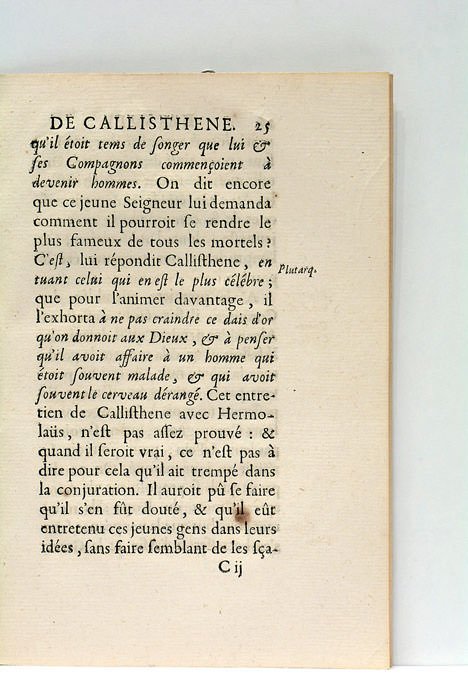 DE CALLISTHENE. 25
qu'il étoit tems de ſonger que lui &
ſes Compagnons commençoient à
devenir hommes. On dit encore
que ce jeune Seigneur lui demanda
comment il pourroit ſe rendre le
plus fameux de tous les mortels?
C'eſt, lui répondit Calliſthene, en
tuant celui qui en eſt le plus célébre;
Plutarq.
que pour l'animer davantage, il
l'exhorta à ne pas craindre ce dais d'or
qu'on donnoit aux Dieux, & à penſer
qu'il avoit affaire à un homme qui
étoit ſouvent malade, & qui avoit
ſouvent le cerveau dérangé. Cet entre-
tien de Calliſthene avec Hermo-
laüs, n'eſt pas aſſez prouvé: &
quand il ſeroit vrai, ce n'eſt pas à
dire pour cela qu'il ait trempé dans
la conjuration. Il auroit pû ſe faire
qu'il s'en fût douté, & qu'il eût
entretenu ces jeunes gens dans leurs
idées, ſans faire ſemblant de les ſça-
C ij